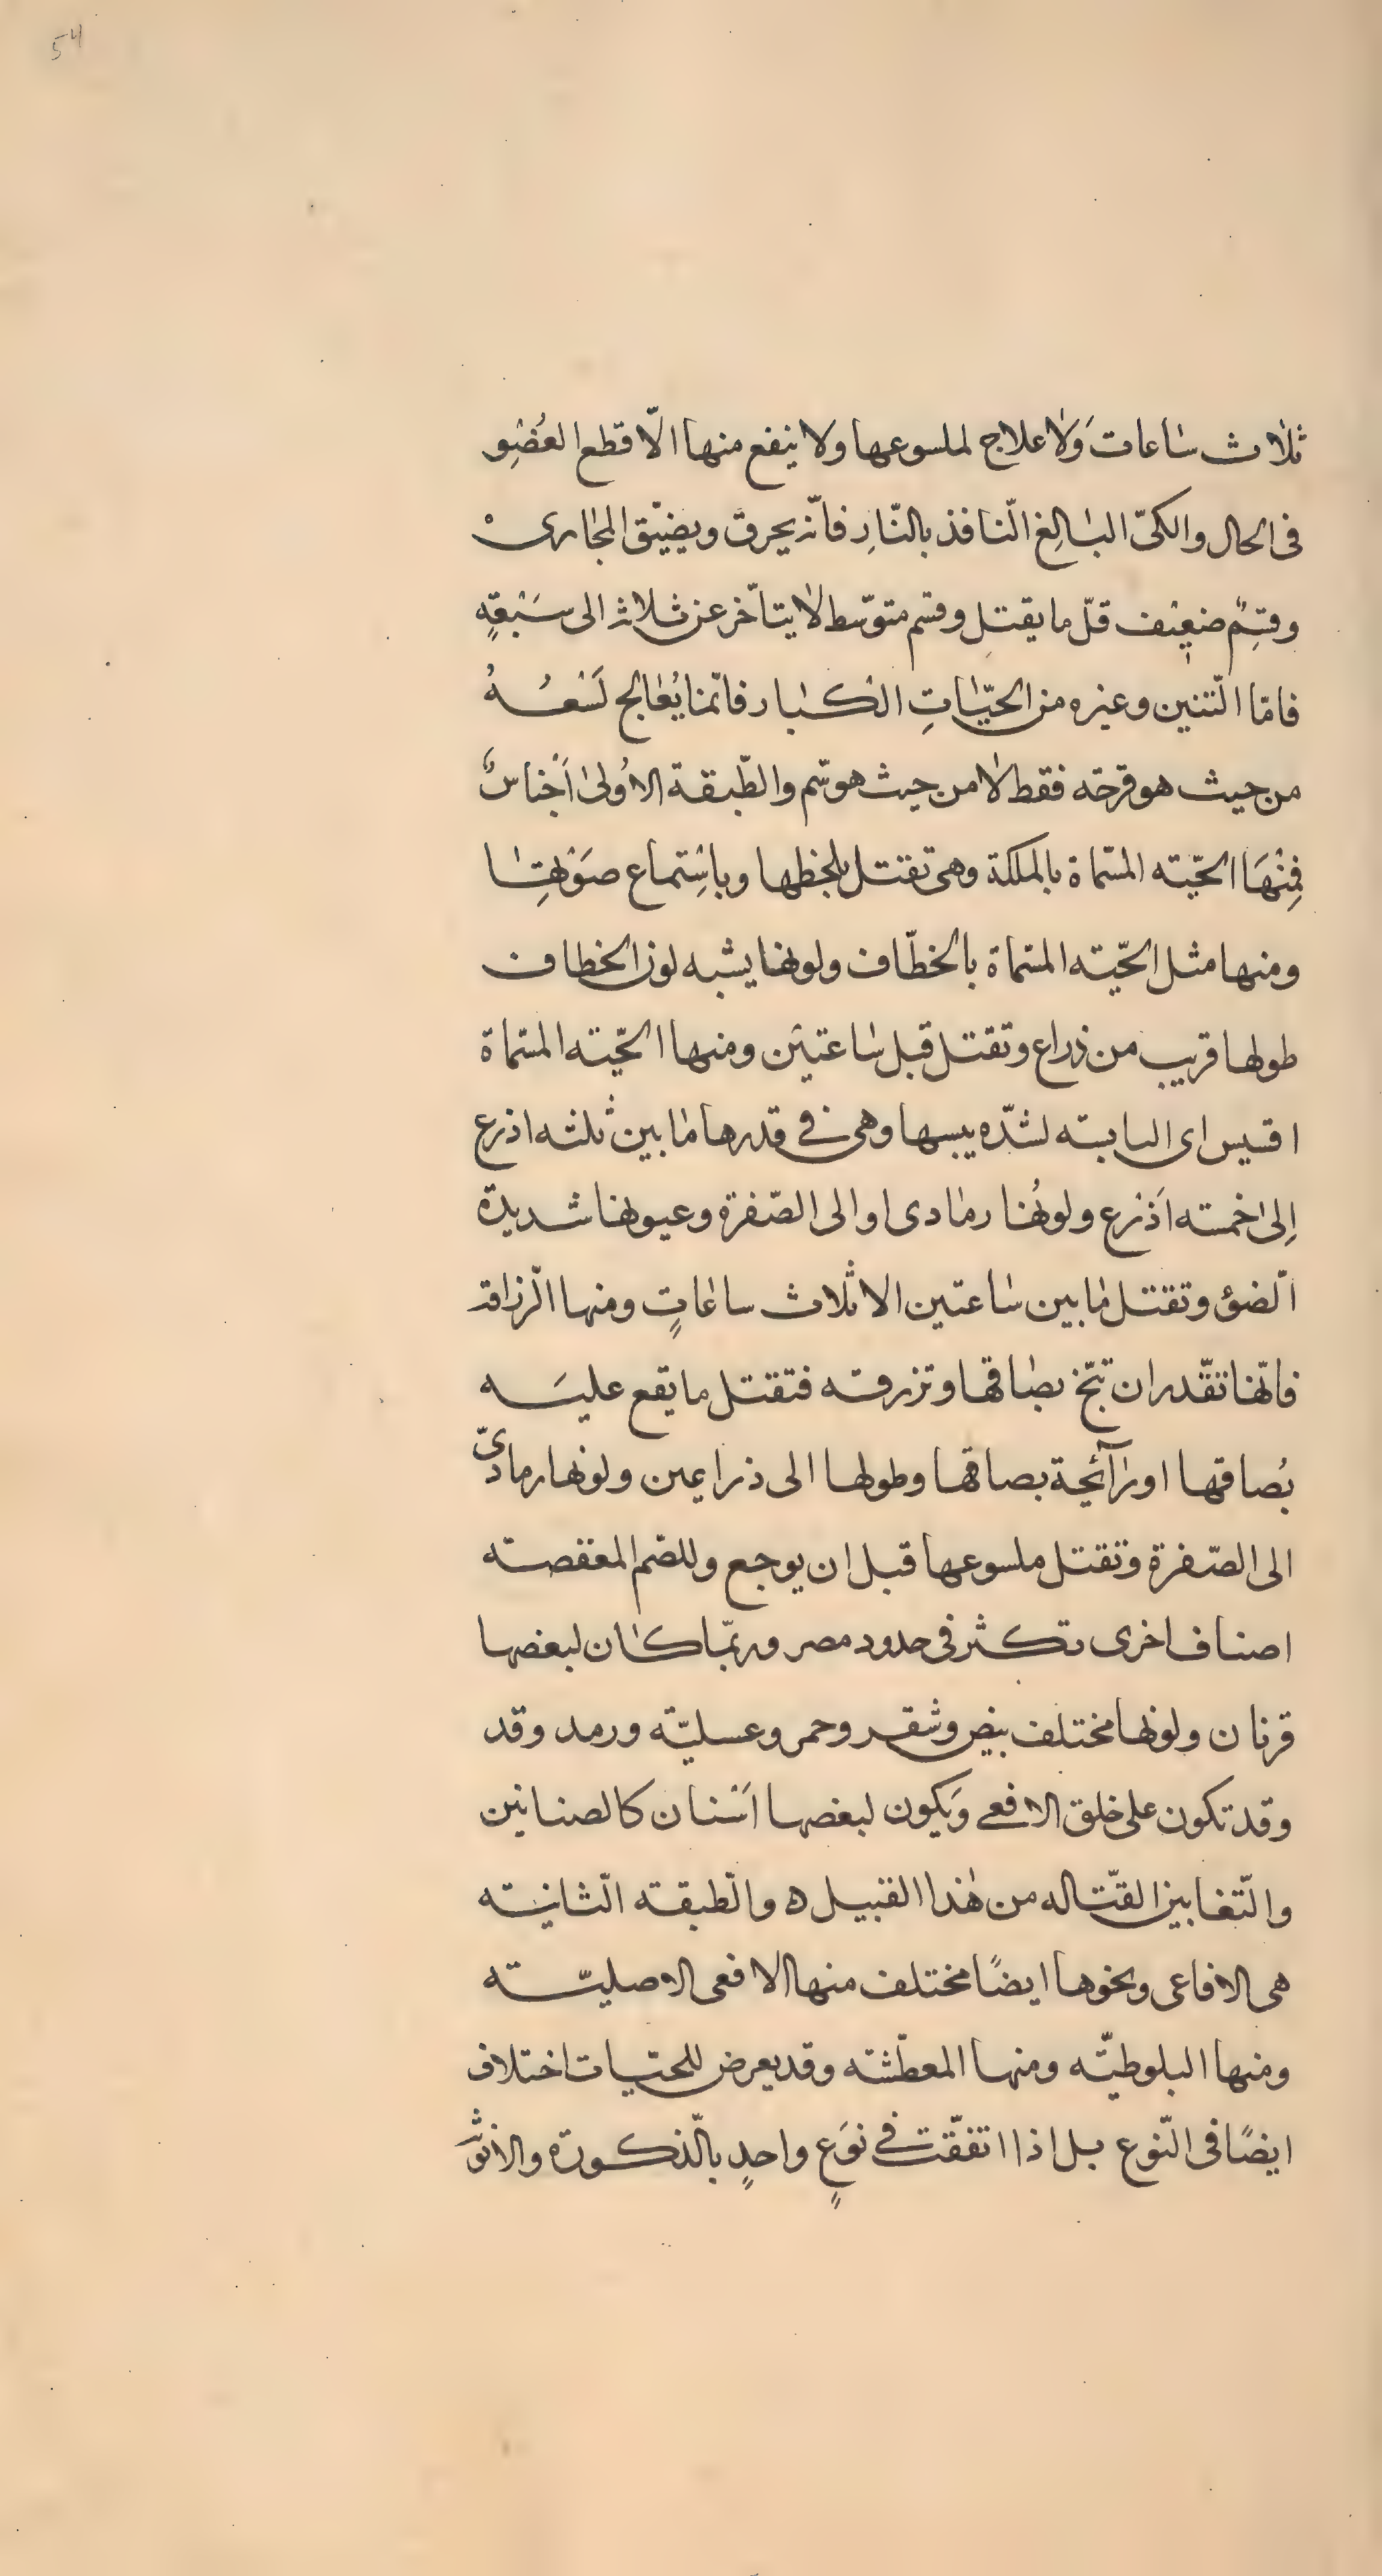 54
ثلاث ساعات وَلا علاج لملسوعها ولا ينفع منها الّا قطع العُضِو
فى الحال والكىّ البالِغ النّافذ بالنّارِ فانّه يحرق ويضيّق المجارى ه
وقسِمٌ ضعيف قلّ ما يقتل وقسم متوّسط لا يتأخّر عن ثلاثه الى سَبْعَةٍ
فامّا التّنين وغيره من الحيّاتِ الكبار فانّما يُعالج لَسْعُهُ
من حيث هو قرحة فقط لا من حيث هو سّم والطّبقة الاُولى اَجْناسٌ
فمِنْهَا الحيّة المسّماة بالملكة وهى تقتل بلحظها وباسْتِماع صَوْتِها
ومنها مثل الحيّة المسّماة بالخطّاف ولونها يشبه لون الخطاف
طولها قريب من ذراع وتقتل قبل ساعتين ومنها الحيّة المسّماة
اقسيس اى اليابسة لشدّه يبسها وهى فى قدرها ما بين ثلثه اذرع
اِلى خمسة اَذْرع ولونُها رمادى او الى الصّفرة وعيونها شديدة
الّضوْ وتقتل ما بين ساعتين الا ثلاث ساعاتٍ ومنها الزّراقة
فانّها تقّدر ان تبّخ بصاقها وتزرقه فتقتل ما يقع عليَه
بُصاقها او رآئحة بصاقها وطولها الى ذراعين ولونها رمادىّ
الى الصّفرة وتقتل ملسوعها قبل ان يوجع وللصّم المعقصة
اصناف اخرى تكثر فى حدود مصر وربّما كان لبعضها
قرنان ولونها مختلف بيض وشقر وحمر وعسليّة ورمد وقد
وقد تكون على خلق الافعى وَيكون لبعضها اَسْنان كالصنانين
والّتغابين القتّاله من هٰذا القبيل ه والّطبقة الّثانية
هى الافاعى ونحوها ايضًا مختلف منها الافعى الاصليّة
ومنها البلوطيّة ومنها المعطّشة وقد يعرض للحيّات اختلاف
ايضًا فى النّوع بل اذا اتفقّت فى نوَعٍ واحدٍ بالّذكورة والانوثه